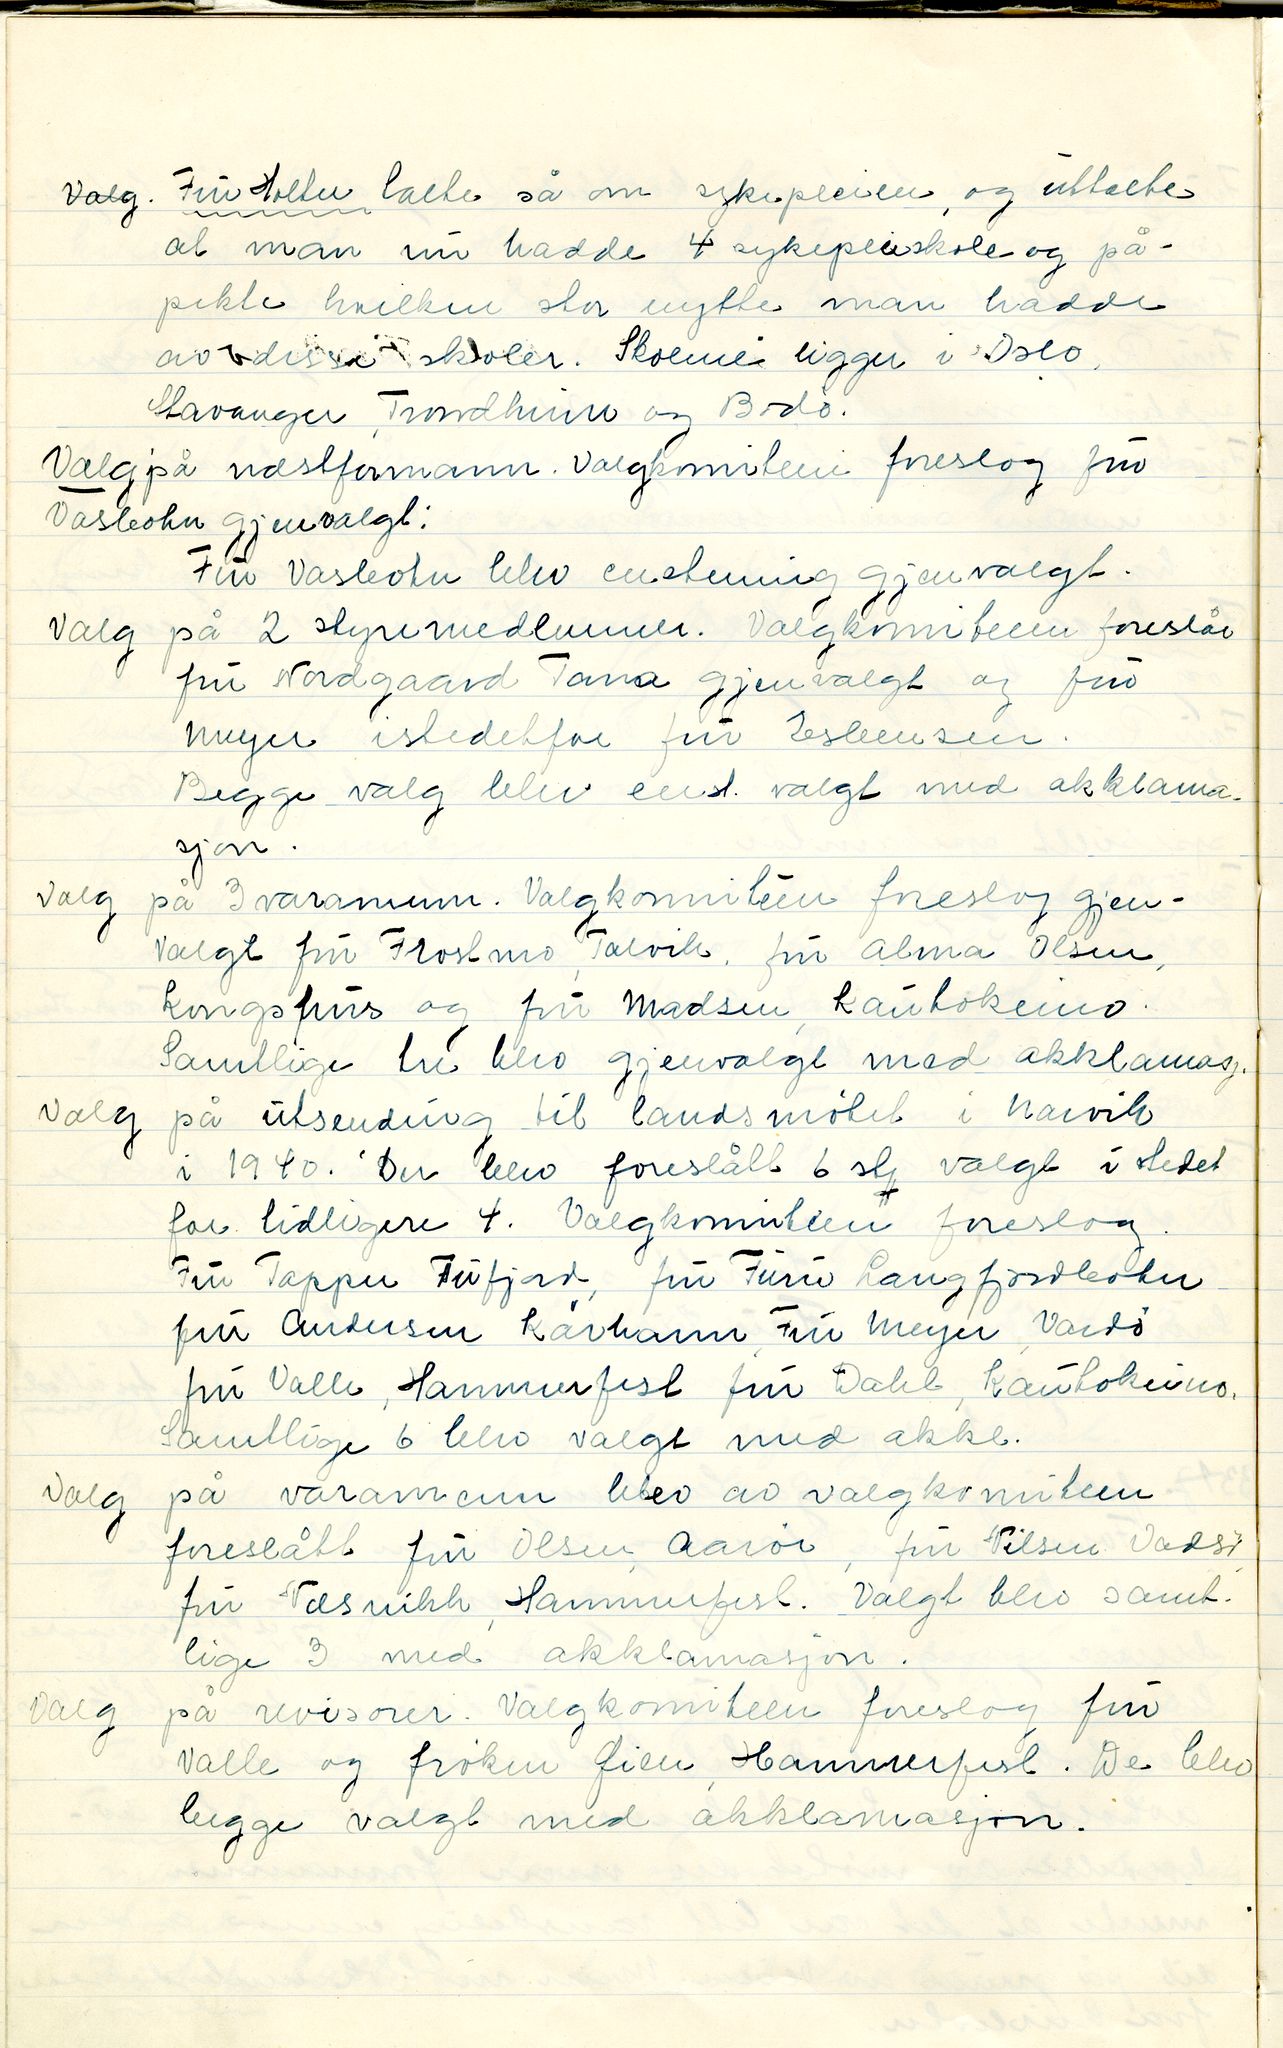 Valg. Frú Holter talte så om sykepleien, og úttalte
at man nú hadde 4 sykepleiskole og på-
pekte hvilken stor nytte man hadde
av disse skoler. Skolene ligger i Oslo,
Stavanger, Trondheim og Bodö.
Valg på næstformann. Valgkomiteen foreslog frú
Vasbotn gjenvalgt:
Frú Vasbotn blev enstemmig gjenvalgt.
Valg på 2 styremedlemmer. Valgkomiteen foreslår
frú Nordgaard Tana gjenvalgt og frú
Meyer istedetfor frú Esbensen.
Begge valg blev enst. valgt med akklama-
sjon.
Valg på 3 varamenn. Valgkomiteen foreslog gjen-
valgt frú Frostmo, Talvik, frú Alma Olsen,
Kongsfjús og frú Madsen, Kaútokeino.
Samtlige tre blev gjenvalgt med akklamasj.
Valg på útsending til landsmötet i Narvik
i 1940. Der blev foreslått 6 stk valgt i stedet
for tidligere 4. Valgkomiteen foreslog.
Frú Tapper Fúfjord, frú Fúrú Langfjordbotn
frú Andersen Kårhamn, Frú Meyer, Vardö
frú Valle, Hammerfest frú Dahl, Kaútokeino.
Samtlige 6 blev valgt med akkl.
Valg på varamenn blev av valgkomiteen
foreslått frú Olsen, Aaröi, frú Nilsen Vadsö,
frú Næsvikh, Hammerfest. Valgt blev samt-
lige 3 med akklamasjon.
Valg på revisorer. Valgkomiteen foreslog frú
Valle og fröken Lien, Hammerfest. De blev
begge valgt med akklamasjon.